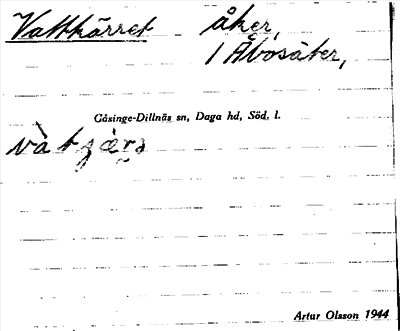 Vattkärret åker,
1 Åbosäter,
Gåsinge-Dillnäs sn, Daga hd, Söd. l.
Artur Olsson 1944